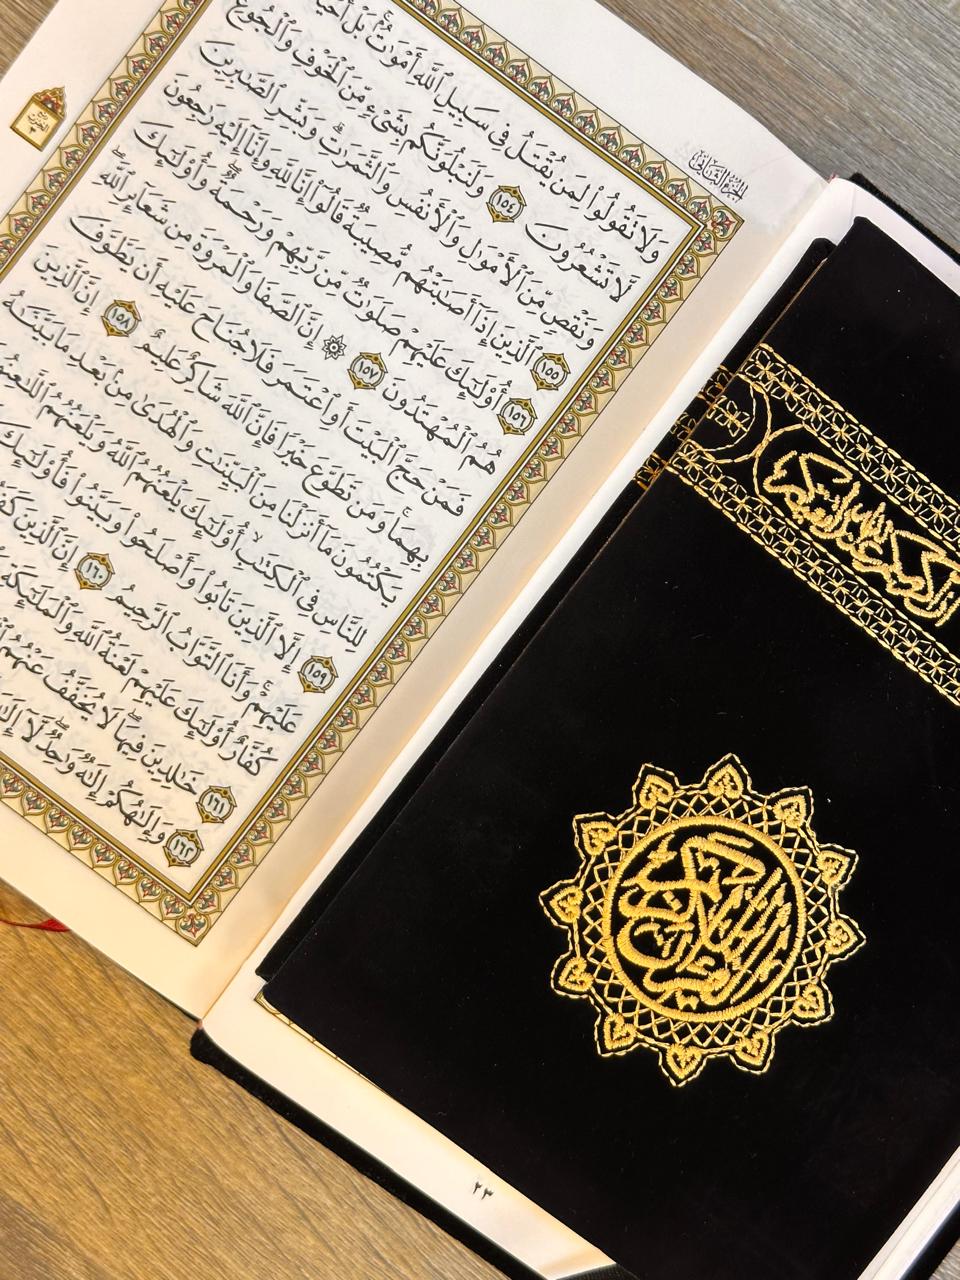 الجزء الثاني
ربع الحزب ٣
وَلَا تَقُولُوا۟ لِمَن يُقْتَلُ فِى سَبِيلِ ٱللَّهِ أَمْوَٰتٌۢ ۚ بَلْ
لَّا تَشْعُرُونَ ١٥٤ وَلَنَبْلُوَنَّكُم بِشَىْءٍ مِّنَ ٱلْخَوْفِ وَٱلْجُوعِ
وَنَقْصٍ مِّنَ ٱلْأَمْوَٰلِ وَٱلْأَنفُسِ وَٱلثَّمَرَٰتِ ۗ وَبَشِّرِ ٱلصَّٰبِرِينَ
١٥٥ ٱلَّذِينَ إِذَآ أَصَٰبَتْهُم مُّصِيبَةٌ قَالُوٓا۟ إِنَّا لِلَّهِ وَإِنَّآ إِلَيْهِ رَٰجِعُونَ
١٥٦ أُو۟لَٰٓئِكَ عَلَيْهِمْ صَلَوَٰتٌ مِّن رَّبِّهِمْ وَرَحْمَةٌ ۖ وَأُو۟لَٰٓئِكَ
هُمُ ٱلْمُهْتَدُونَ ١٥٧ ۞ إِنَّ ٱلصَّفَا وَٱلْمَرْوَةَ مِن شَعَآئِرِ ٱللَّهِ ۖ
فَمَنْ حَجَّ ٱلْبَيْتَ أَوِ ٱعْتَمَرَ فَلَا جُنَاحَ عَلَيْهِ أَن يَطَّوَّفَ
بِهِمَا ۚ وَمَن تَطَوَّعَ خَيْرًا فَإِنَّ ٱللَّهَ شَاكِرٌ عَلِيمٌ ١٥٨ إِنَّ ٱلَّذِينَ
يَكْتُمُونَ مَآ أَنزَلْنَا مِنَ ٱلْبَيِّنَٰتِ وَٱلْهُدَىٰ مِنۢ بَعْدِ مَا بَيَّنَّٰهُ
لِلنَّاسِ فِى ٱلْكِتَٰبِ ۙ أُو۟لَٰٓئِكَ يَلْعَنُهُمُ ٱللَّهُ وَيَلْعَنُهُمُ
١٥٩ إِلَّا ٱلَّذِينَ تَابُوا۟ وَأَصْلَحُوا۟ وَبَيَّنُوا۟ فَأُو۟لَٰٓئِكَ
عَلَيْهِمْ ۚ وَأَنَا ٱلتَّوَّابُ ٱلرَّحِيمُ ١٦٠ إِنَّ ٱلَّذِينَ
كُفَّارٌ أُو۟لَٰٓئِكَ عَلَيْهِمْ لَعْنَةُ ٱللَّهِ وَٱلْمَلَٰٓئِكَةِ
١٦١ خَٰلِدِينَ فِيهَا ۖ لَا يُخَفَّفُ عَنْهُمُ
١٦٢ وَإِلَٰهُكُمْ إِلَٰهٌ وَٰحِدٌ ۖ لَّآ
القرآن الكريم
٢٣